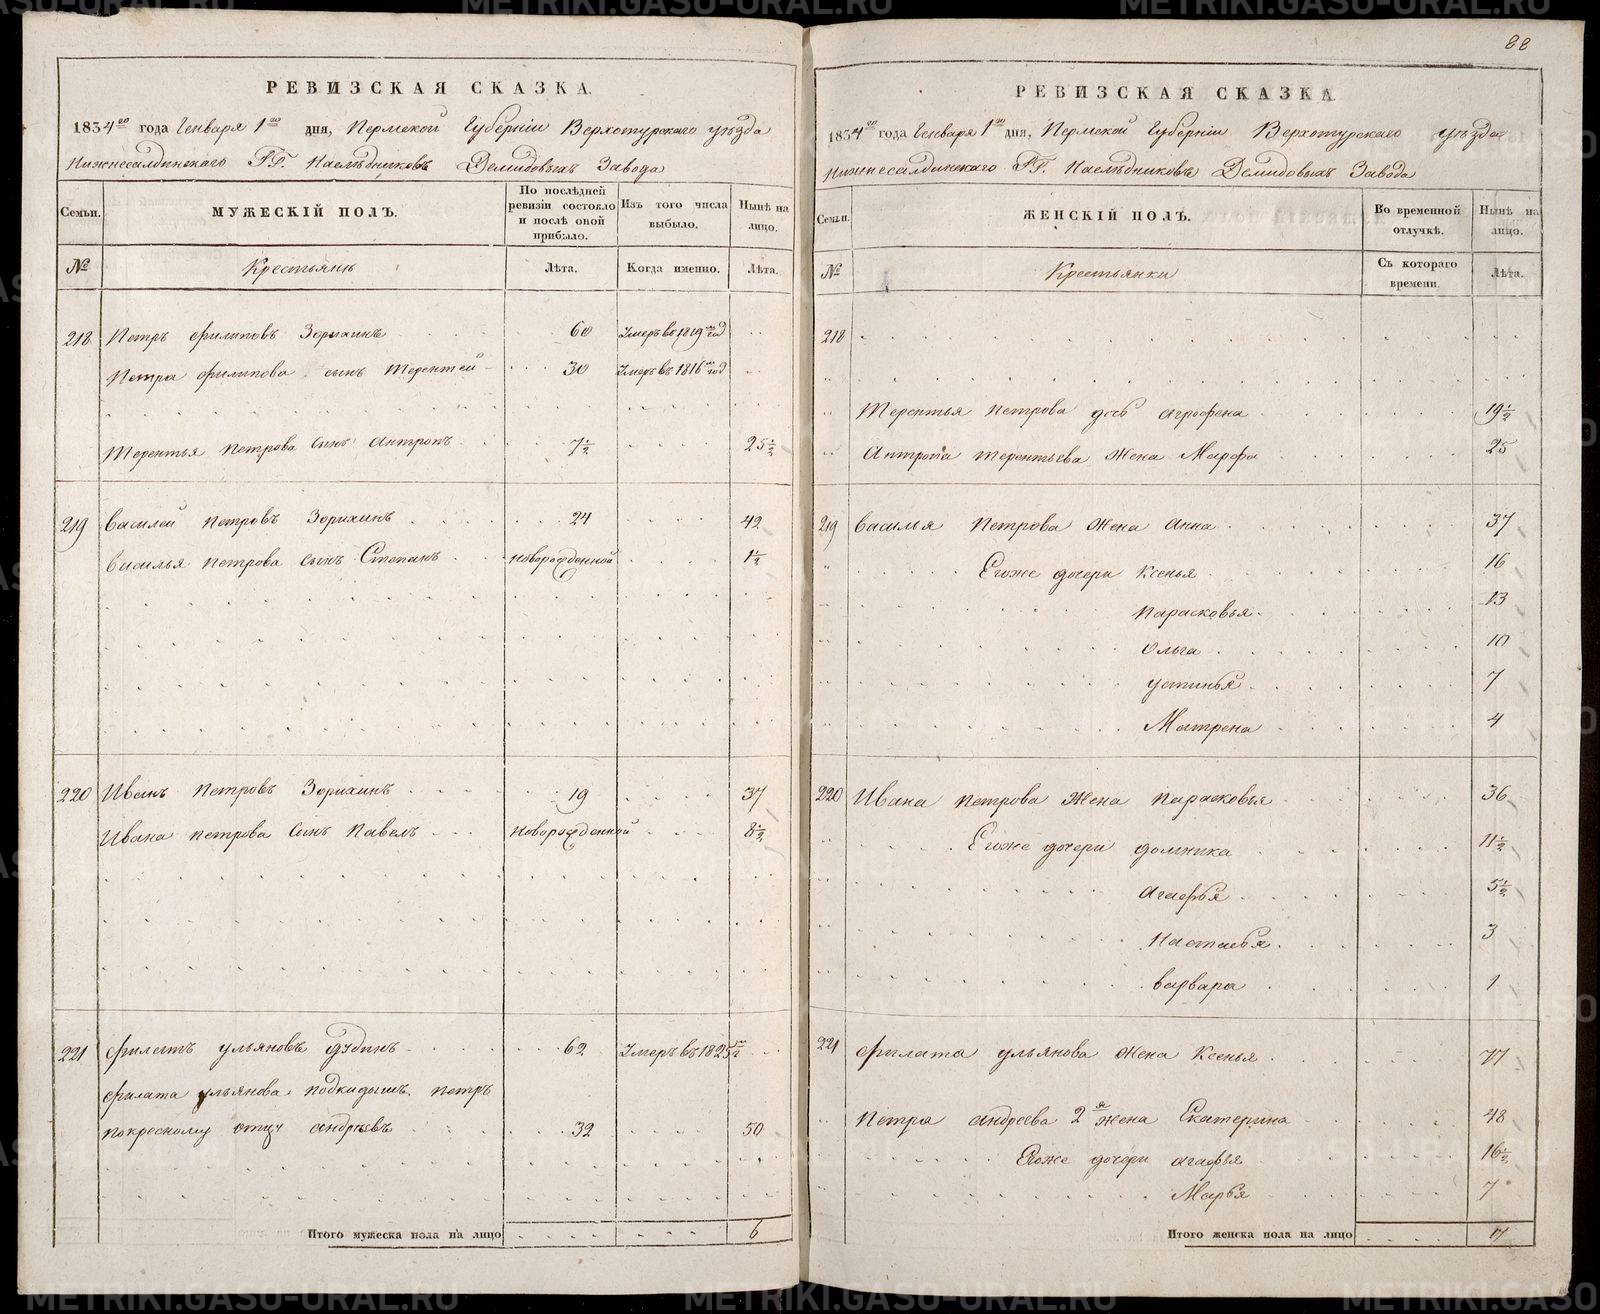 РЕВИЗСКАЯ СКАЗКА.
1834го года Генваря 1го дня, Пермской Губерніи Верхотурскаго уѣзда
Нижнесалдинскаго ГГ. Наслѣдниковъ Демидовыхъ Завода
Семьи. МУЖЕСКІЙ ПОЛЪ. По послѣдней ревизіи состояло и послѣ оной прибыло. Изъ того числа выбыло. Нынѣ на лицо.
№ Крестьянъ Лѣта. Когда именно. Лѣта.
218 Петръ Филиповъ Зорихинъ 60 Умеръ въ 1819м год
Петра Филипова сынъ Терентей 30 Умеръ въ 1816м год
Терентья Петрова сынъ Антропъ 7½ 25½
219 Василей Петровъ Зорихинъ 24 42
Василья Петрова сынъ Степанъ новорожденной 1½
220 Иванъ Петровъ Зорихинъ 19 37
Ивана Петрова сынъ Павелъ новорожденной 8½
221 Филатъ Ульяновъ Дубинъ 62 Умеръ въ 1825м
Филата Ульянова подкидышъ Петръ
покресному отцу Андреевъ 32 50
Итого мужеска пола на лицо 6
88
РЕВИЗСКАЯ СКАЗКА.
1834го года Генваря 1го дня, Пермской Губерніи Верхотурскаго уѣзда
Нижнесалдинскаго ГГ. Наслѣдниковъ Демидовыхъ Завода
Семьи. ЖЕНСКІЙ ПОЛЪ. Во временной отлучкѣ. Нынѣ на лицо.
№ Крестьянки Съ котораго времени. Лѣта.
218
Терентья Петрова дочь Агрофена 19½
Антропа Терентьева жена Марфа 25
219 Василья Петрова жена Анна 37
Егоже дочери Ксенья 16
Парасковья 13
Ольга 10
Устинья 7
Матрена 4
220 Ивана Петрова жена Парасковья 36
Егоже дочери Домника 11½
Агафья 5½
Настасья 3
Варвара 1
221 Филата Ульянова жена Ксенья 77
Петра Андреева 2я жена Екатерина 48
Егоже дочери Агафья 16½
Марья 7
Итого женска пола на лицо 17
METRIKI.GASO-URAL.RU